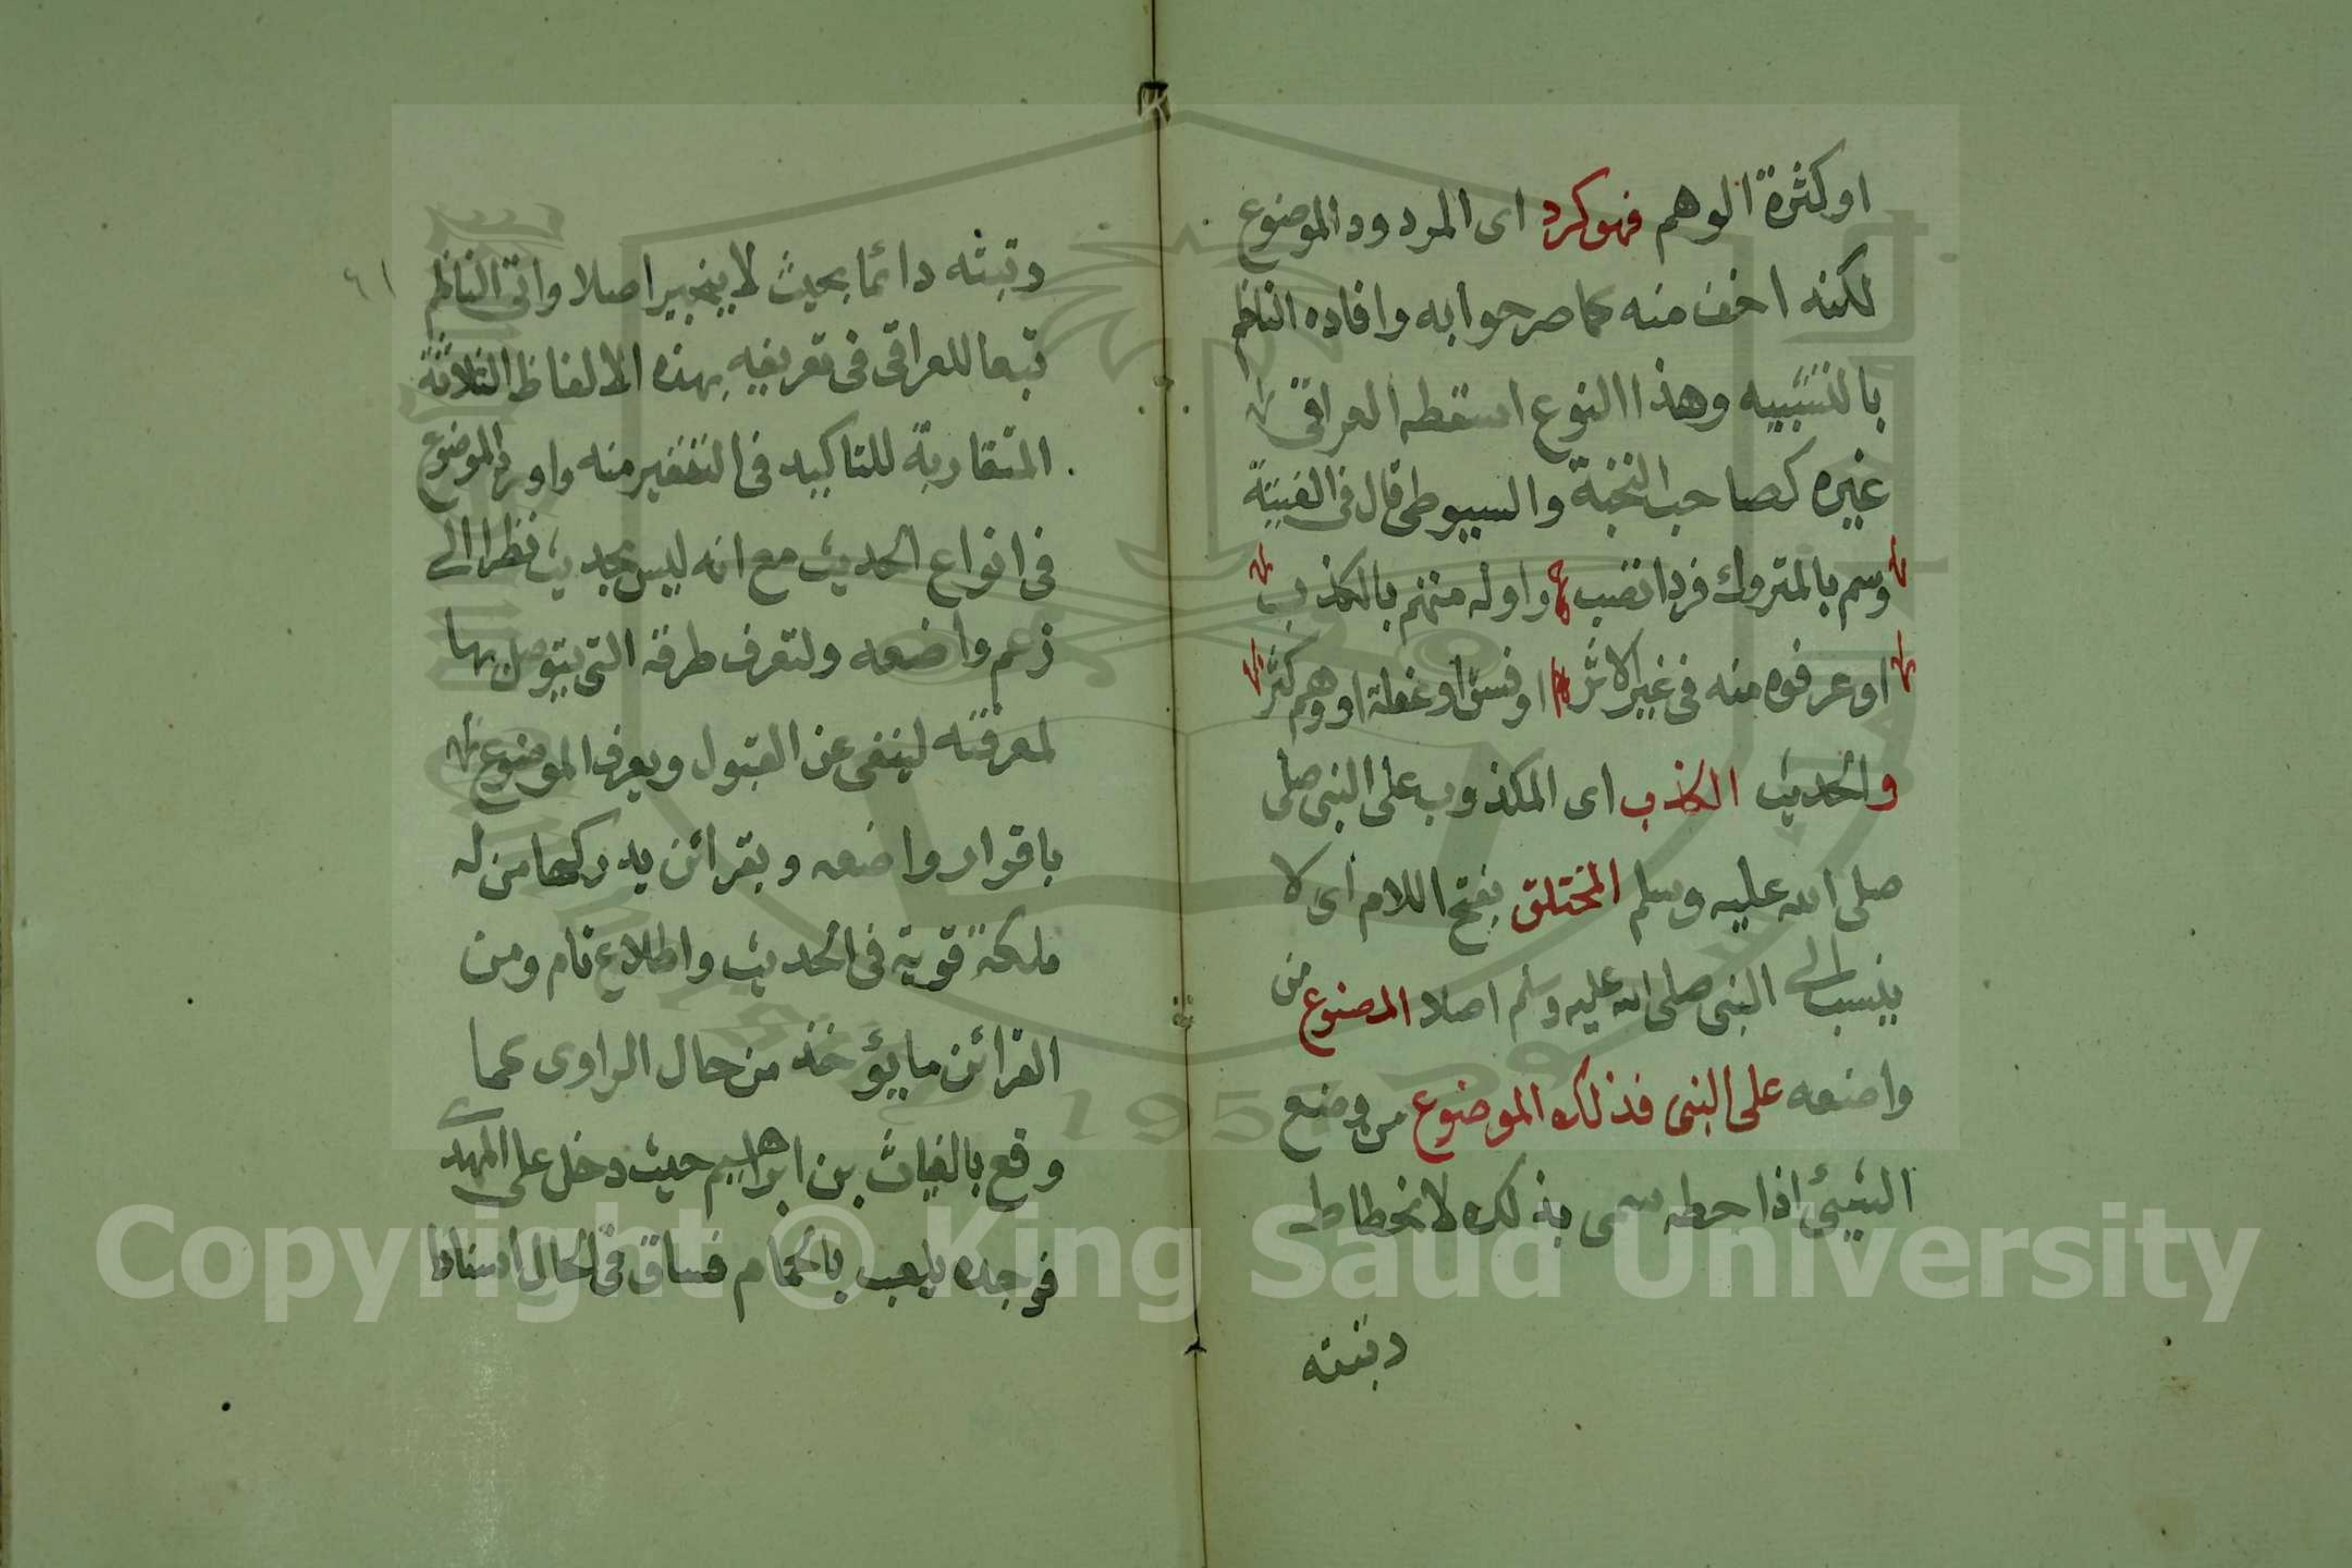 او كثرة الوهم فهو كرد اى المردود الموضوع
لكنه اخف منه كما صرحوا به وافاده الناظم
بالتشبيه وهذا النوع اسقطه العراقى
غيره كصاحب النخبة والسيوطى قال فى الفيته
وسم بالمتروك فردا تصب واوله متهم بالكذب
او عرفوه منه فى غير الاثر او فسق او غفلة او وهم كثر
والحديث الكذب اى المكذوب على النبى صلى
صلى الله عليه وسلم المختلق بفتح اللام اى لا
ينسب الى النبى صلى الله عليه وسلم اصلا المصنوع من
واضعه على النبى فذلك الموضوع من وضع
الشيئ اذا حطه سمى بذلك لانحطاط
رتبته
رتبته دائما بحيث لا ينجبر اصلا واتى الناظم
٦١
تبعا للعراقى فى تعريفه بهذه الالفاظ الثلاثة
المتقاربة للتاكيد فى التنفير منه واورد الموضوع
فى انواع الحديث مع انه ليس بحديث نظرا الى
زعم واضعه ولتعرف طرقه التى يتوصل بها
لمعرفته لينفى عن القبول ويعرف الموضوع
باقرار واضعه وبقرائن يدركها من له
ملكة قوية فى الحديث واطلاع تام ومن
القرائن ما يؤخذ من حال الراوى كما
وقع بالغياث بن ابراهيم حيث دخل على المهدى
فوجده يلعب بالحمام فساق فى الحال اسنادا
Copyright © King Saud University
1957